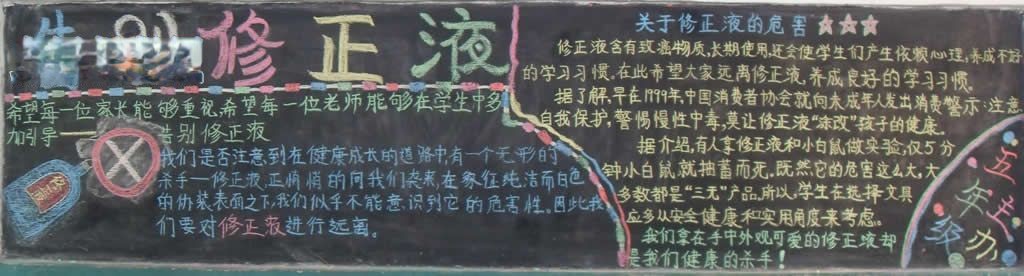 告别修正液
希望每一位家长能够重视,希望每一位老师能够在学生中多
加引导——告别修正液
我们是否注意到在健康成长的道路中有一个无形的
杀手—修正液,正悄悄的向我们袭来,在象征纯洁而白色
的伪装表面之下,我们似乎不能意识到它的危害性。因此我
们要对修正液进行远离。
关于修正液的危害
修正液含有致癌物质,长期使用,还会使学生们产生依赖心理,养成不好
的学习习惯。在此希望大家远离修正液,养成良好的学习习惯。
据了解,早在1999年,中国消费者协会就向未成年人发出消费警示:注意
自我保护,警惕慢性中毒,莫让修正液"涂改"孩子的健康。
据介绍,有人拿修正液和小白鼠做实验,仅5分
钟小白鼠,就抽蓄而死。既然它的危害这么大,大
多数都是"三无"产品。所以,学生在选择文具
应多从安全健康和实用角度来考虑。
我们拿在手中外观可爱的修正液却
是我们健康的杀手!
五年
办